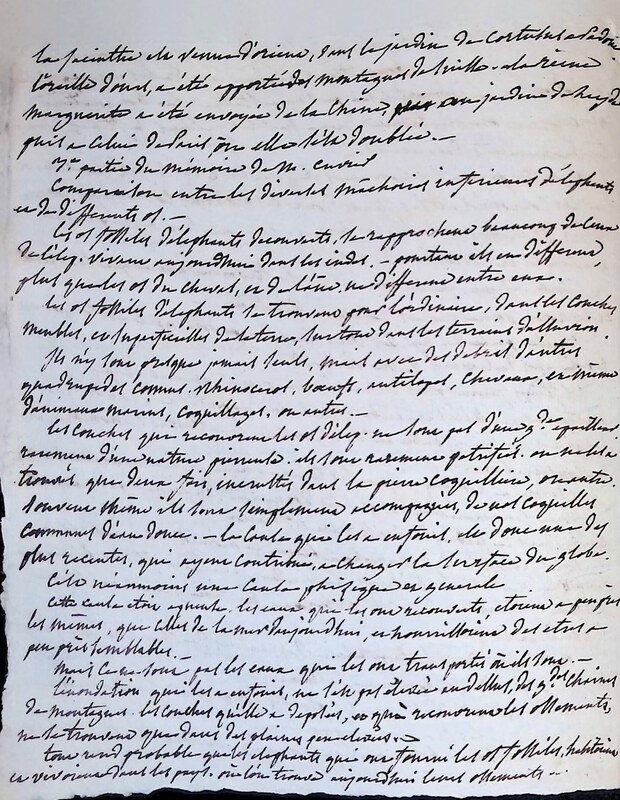 la jacinthe est venue d'orient, dans le jardin de Cortusus a Padoue
l'oreille d'ours, a été apportée des montagnes de Suisse. et la reine
marguerite a été envoyée de la Chine, au jardin du
puis a celui de Paris où elle s'est doublée. —
7e. partie du mémoire de M. Cuvier
Comparaison entre les diverses machoires inferieures d'elephants
et de differents os. —
les os fossiles d'elephants decouverts, se rapprochent beaucoup de ceux
de l'élep. vivant aujourdhui dans les indes. — pourtant ils en different,
plus que les os du cheval, et de l'âne, ne different entre eux.
les os fossiles d'elephants se trouvent pour l'ordinaire, dans les couches
meubles, et superficielles de la terre, surtout dans les terrains d'alluvion.
Ils n'y sont presque jamais seuls, mais avec des debris d'autres
quadrupedes connus. Rhinoceros, bœufs, antilopes, chevaux, et même
d'animaux marins, coquillages, ou autres. —
les couches qui recouvrent les os d'élep. ne sont pas d'une gde. epaisseur
rarement d'une nature pierreuse. ils sont rarement petrifiés. on ne les a
trouvés que deux fois, incrustés dans la pierre coquillière, ou autre.
souvent même ils sont simplement accompagnés, de nos coquilles
communes d'eau douce. — la cause qui les a enfouis, est donc une des
plus recentes, qui ayent contribué, a changer la surface du globe.
C'est néanmoins une cause phisique et generale
cette cause etoit aqueuse. les eaux qui les ont recouverts, etoient a peu près
les mêmes, que celles de la mer d'aujourdhui, et nourrissoient des etres a
peu près semblables.
mais ce ne sont pas les eaux qui les ont transportés où ils sont. —
l'inondation qui les a enfouis, ne s'est pas élevée au dessus, des gdes. Chaines
de montagnes. les couches qu'elle a deposées, et qui recouvrent les ossements,
ne se trouvent que dans des plaines peu elevées. —
tout rend probable que les elephants qui ont fourni les os fossiles, habitoient
et vivoient dans les pays. où l'on trouve aujourdhui leurs ossements —